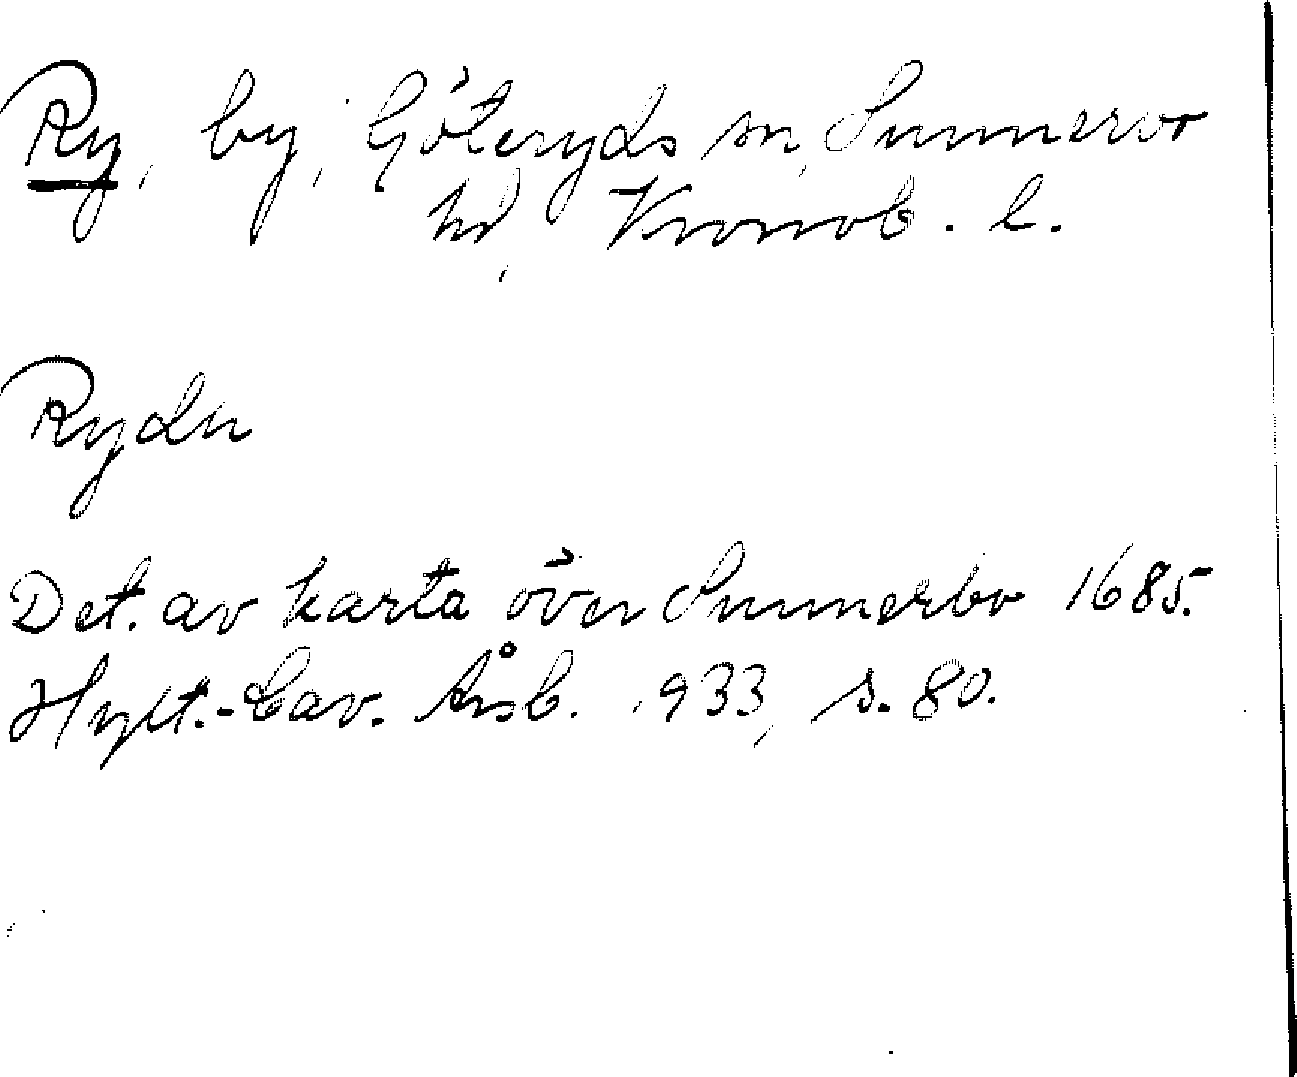 Ry, by, Göteryds sn, Sunnerbo
hd, Kronob. l.
Rydu
Det. av karta över Sunnerbo 1685.
Hylt.-Cav. Årsb. 1933, s. 80.